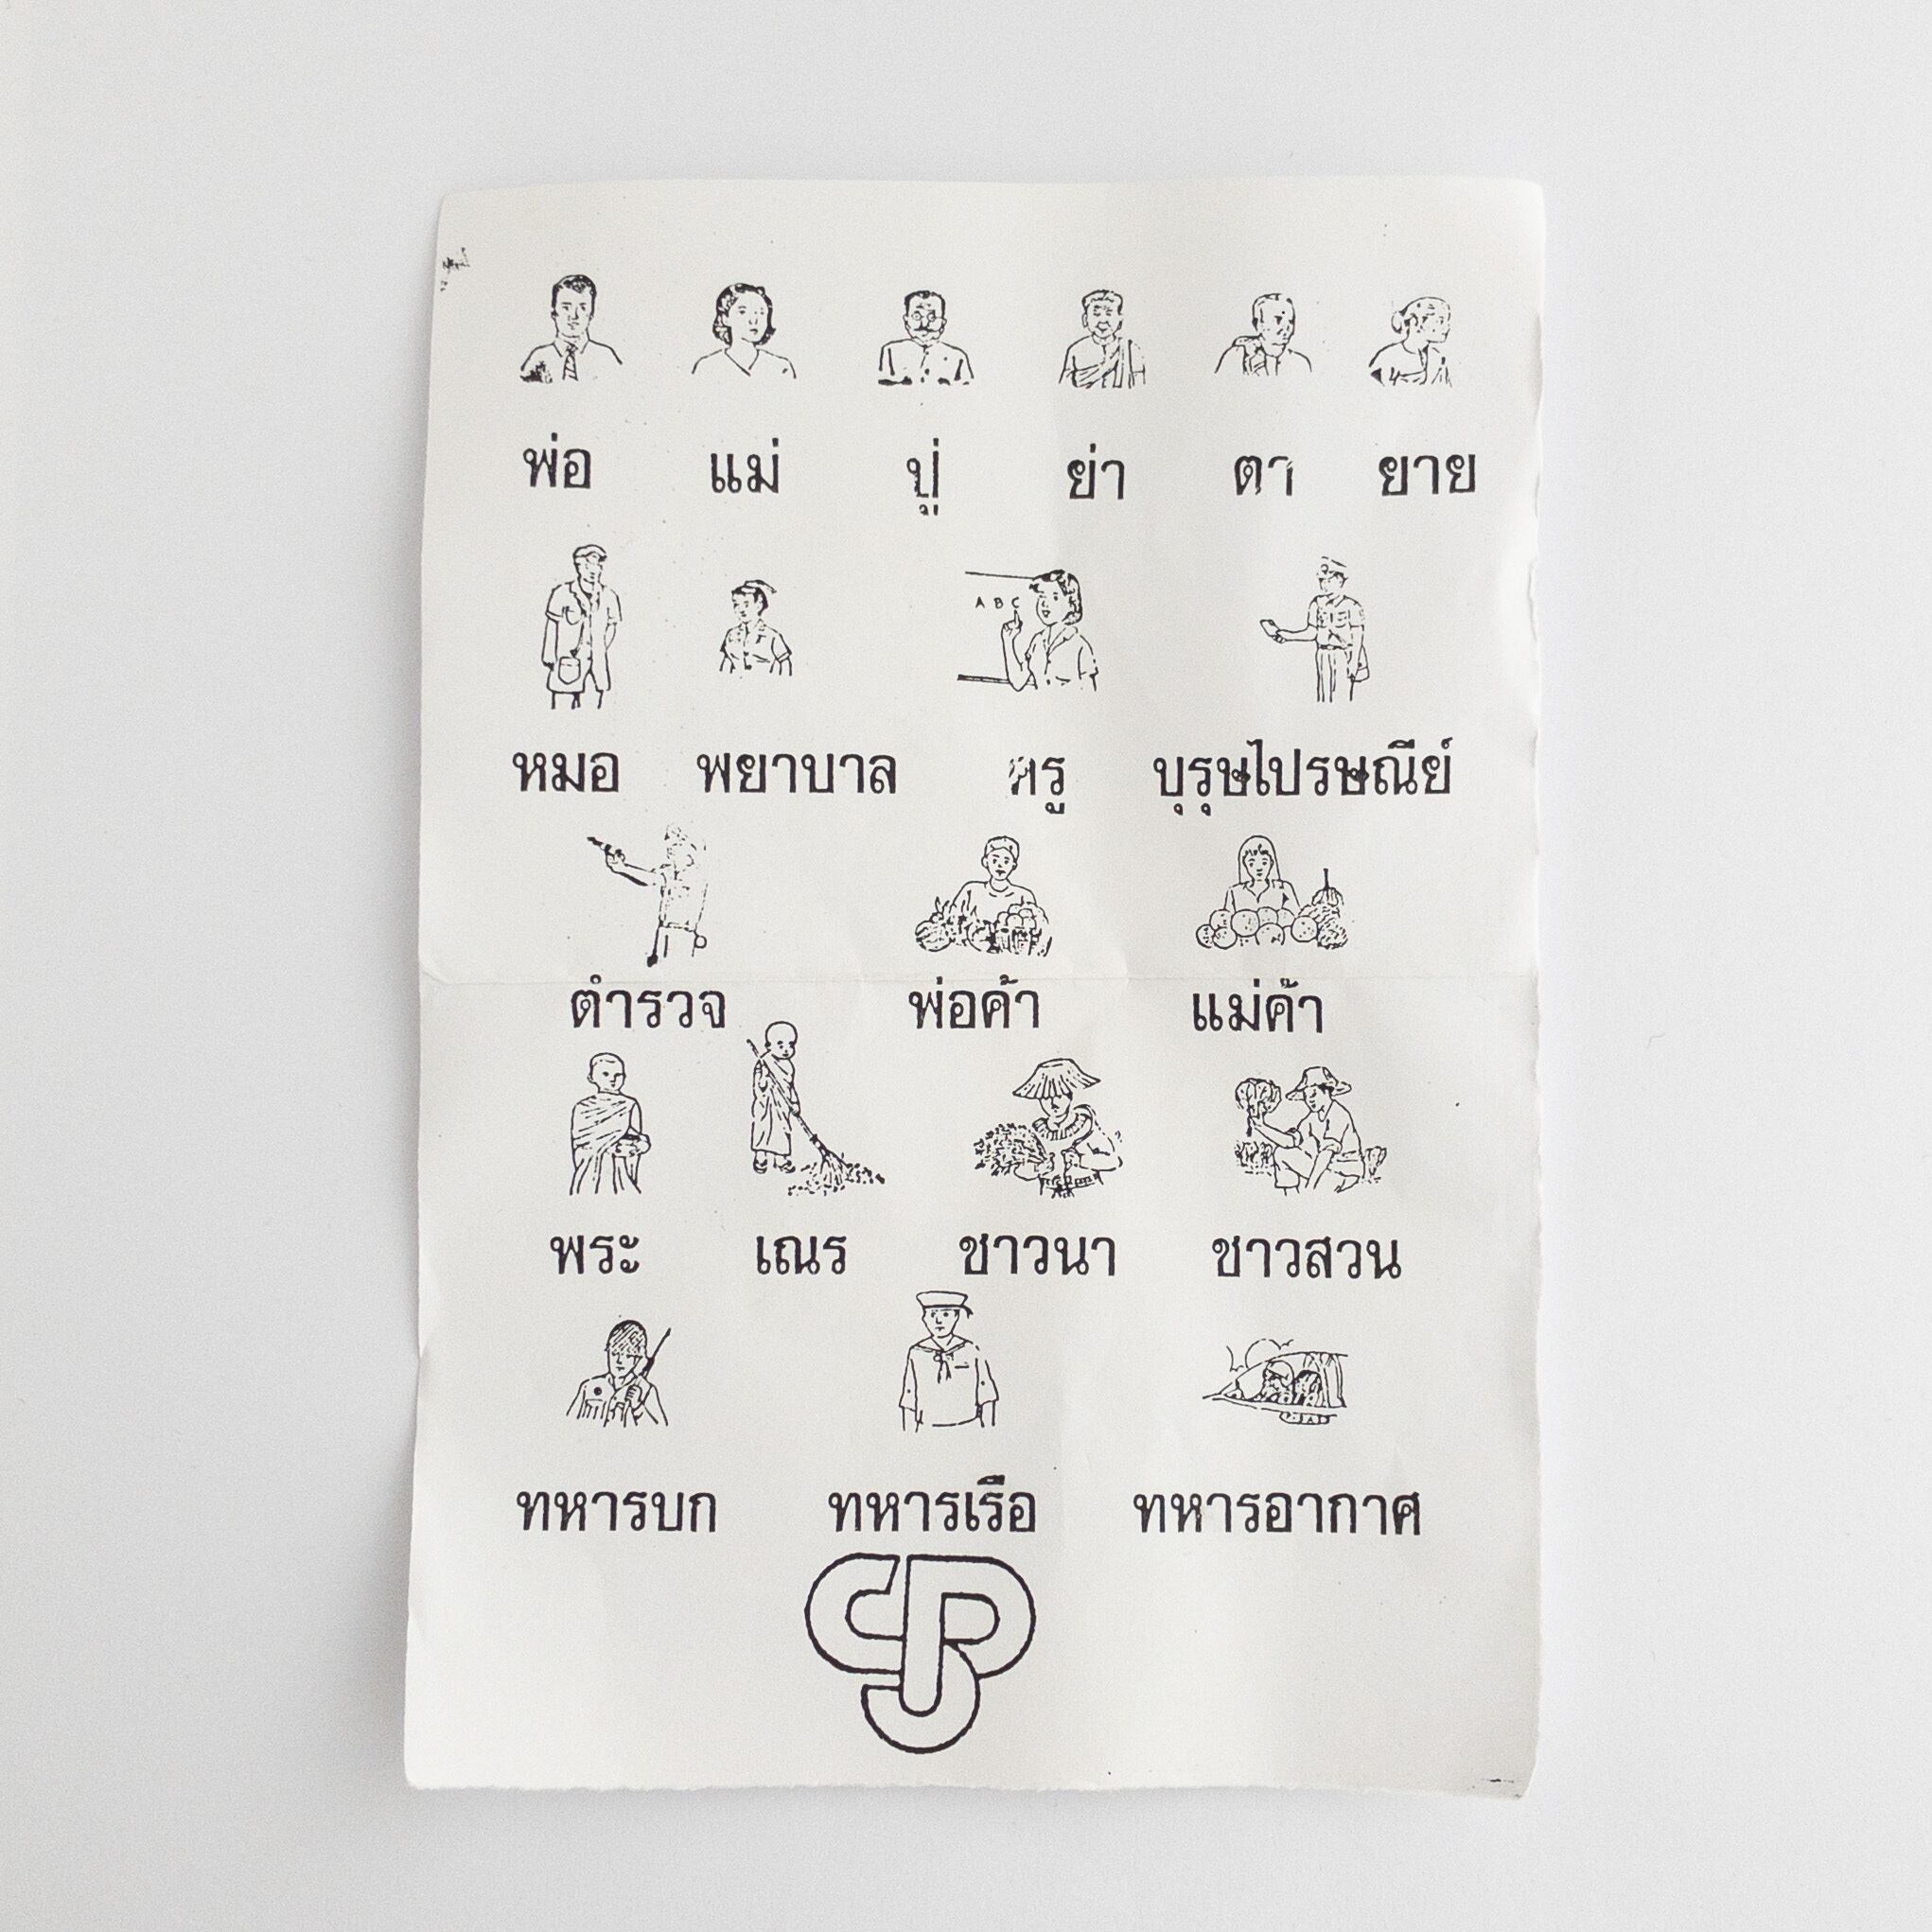 พ่อ แม่ ปู่ ย่า ตา ยาย
A B C
หมอ พยาบาล ครู บุรุษไปรษณีย์
ตำรวจ พ่อค้า แม่ค้า
พระ เณร ชาวนา ชาวสวน
ทหารบก ทหารเรือ ทหารอากาศ